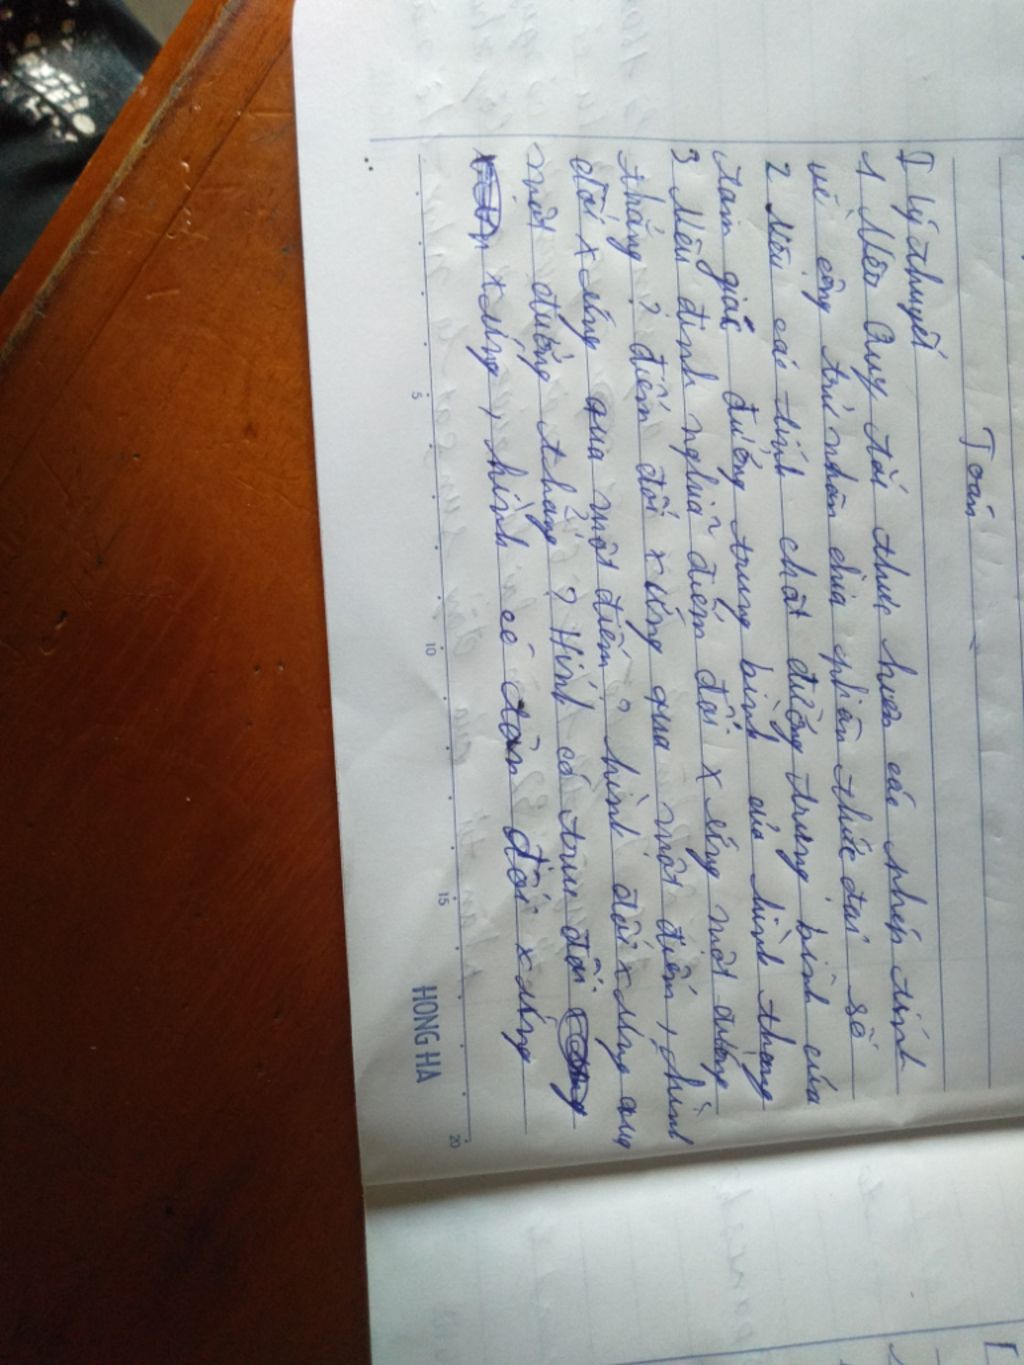 Toán
I Lý thuyết
1 Nêu Quy tắc thưc hiện các phép tính
về cộng trừ nhân chia phân thức đai số
2 Nêu các tính chất đường trung bình của
tam giác đường trung bình của hình thang
3 Nêu định nghĩa điểm đối xứng một đường
thẳng ? điểm đối xứng qua một điểm, hình
đối xứng qua một điểm ? hình đối xứng qua
một đường thẳng ? Hình có trục đối
xứng, hình có đối xứng
5
10
15
20
HONG HA